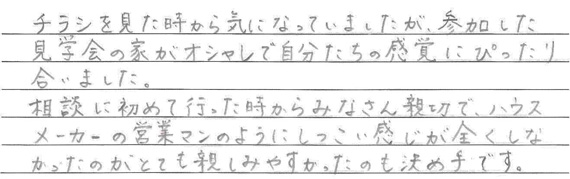 チラシを見た時から気になっていましたが、参加した
見学会の家がオシャレで自分たちの感覚にぴったり
合いました。
相談に初めて行った時からみなさん親切で、ハウス
メーカーの営業マンのようにしつこい感じが全くしな
かったのがとても親しみやすかったのも決め手です。